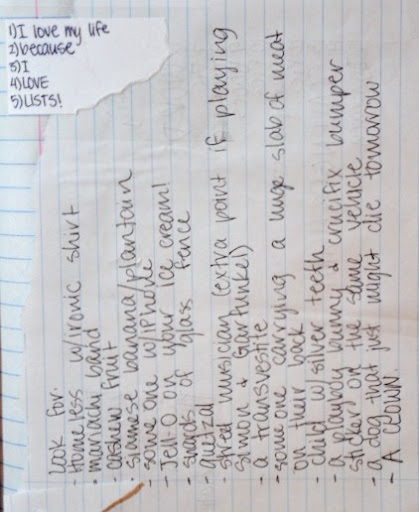 1) I love my life
2) because
3) I
4) LOVE
5) LISTS!
look for:
- homeless w/ironic shirt
- mariachi band
- cashew fruit
- siamese banana/plantain
- some one w/iPhone
- Jell-O on your ice cream!
- shards of glass fence
- quetzal
- street musician (extra point if playing
simon & Garfunkel)
- a transvestite
- someone carrying a huge slab of meat
on their back
- child w/silver teeth
- a playboy bunny & crucifix bumper
sticker on the same vehicle
- a dog that just might die tomorrow
- A CLOWN.